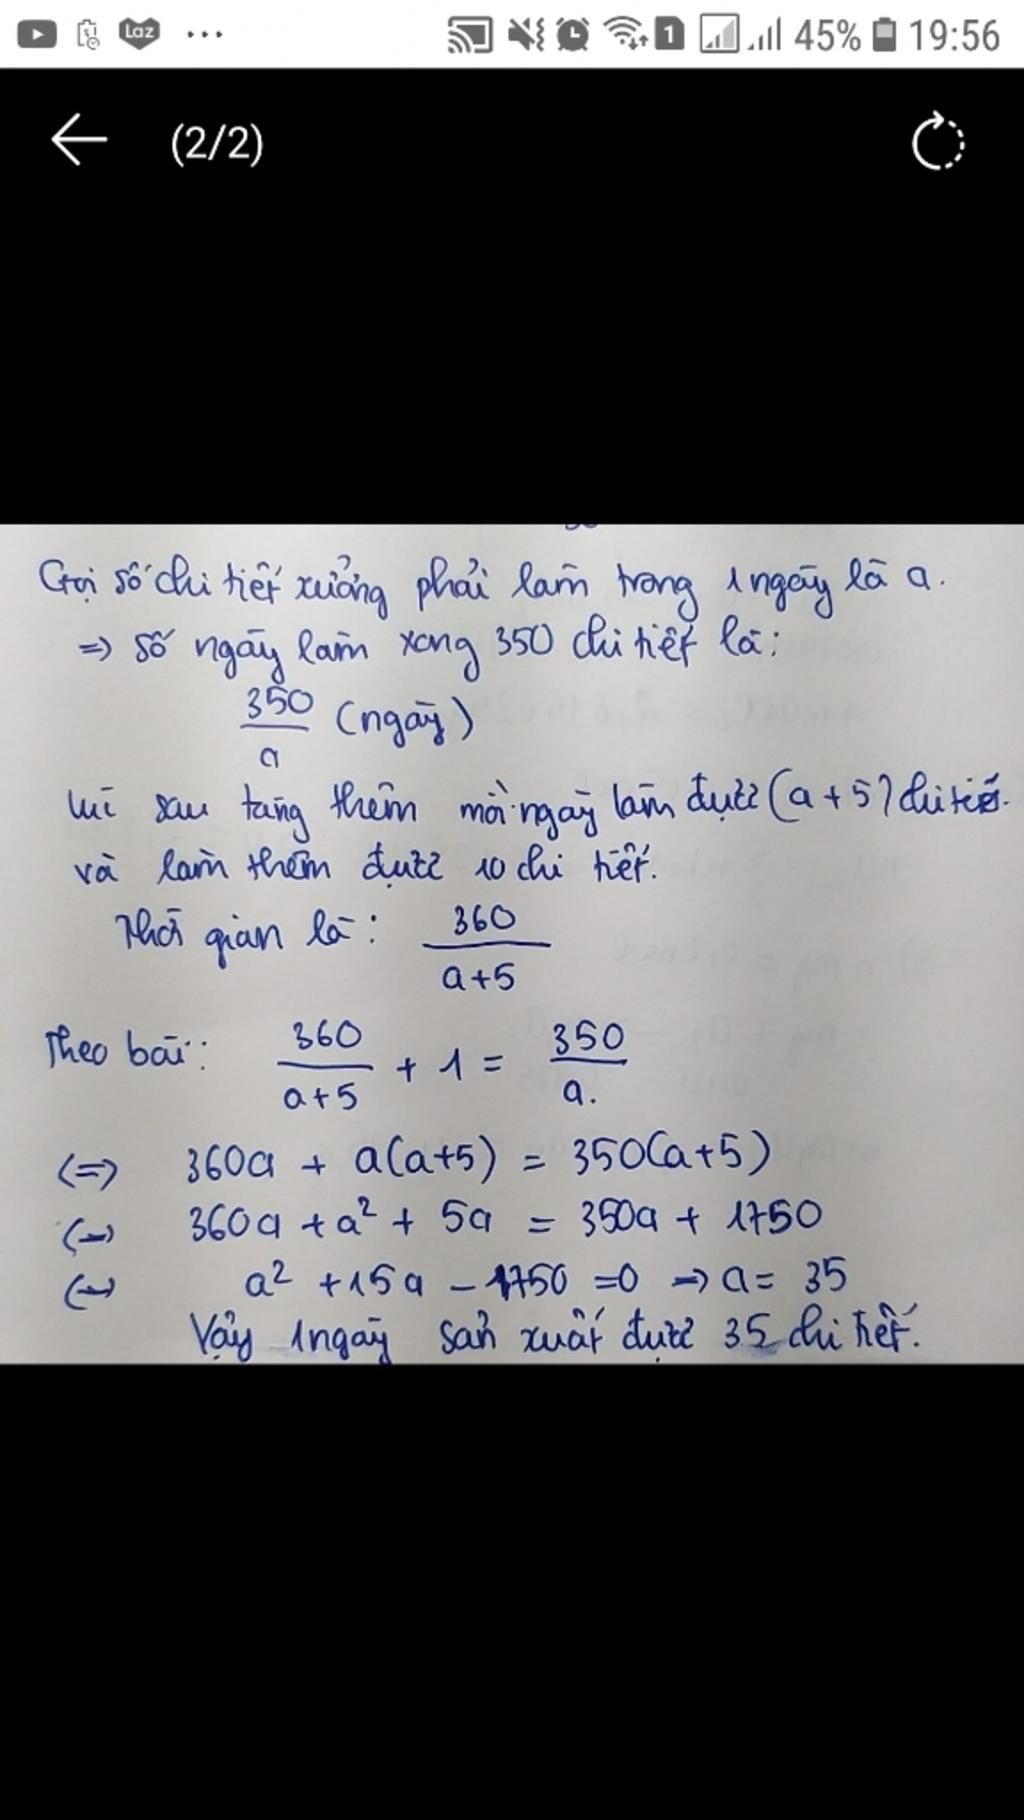 Laz
1
45%
19:56
(2/2)
Gọi số chi tiết xưởng phải làm trong 1 ngày là a.
=> số ngày làm xong 350 chi tiết là:
350/a (ngày)
sau tăng thêm mỗi ngày làm được (a+5) chi tiết
và làm thêm được 10 chi tiết.
Thời gian là: 360/a+5
Theo bài: 360/a+5 + 1 = 350/a.
<=> 360a + a(a+5) = 350(a+5)
<=> 360a + a² + 5a = 350a + 1750
<=> a² + 15a - 1750 = 0 => a = 35
Vậy 1 ngày sản xuất được 35 chi tiết.